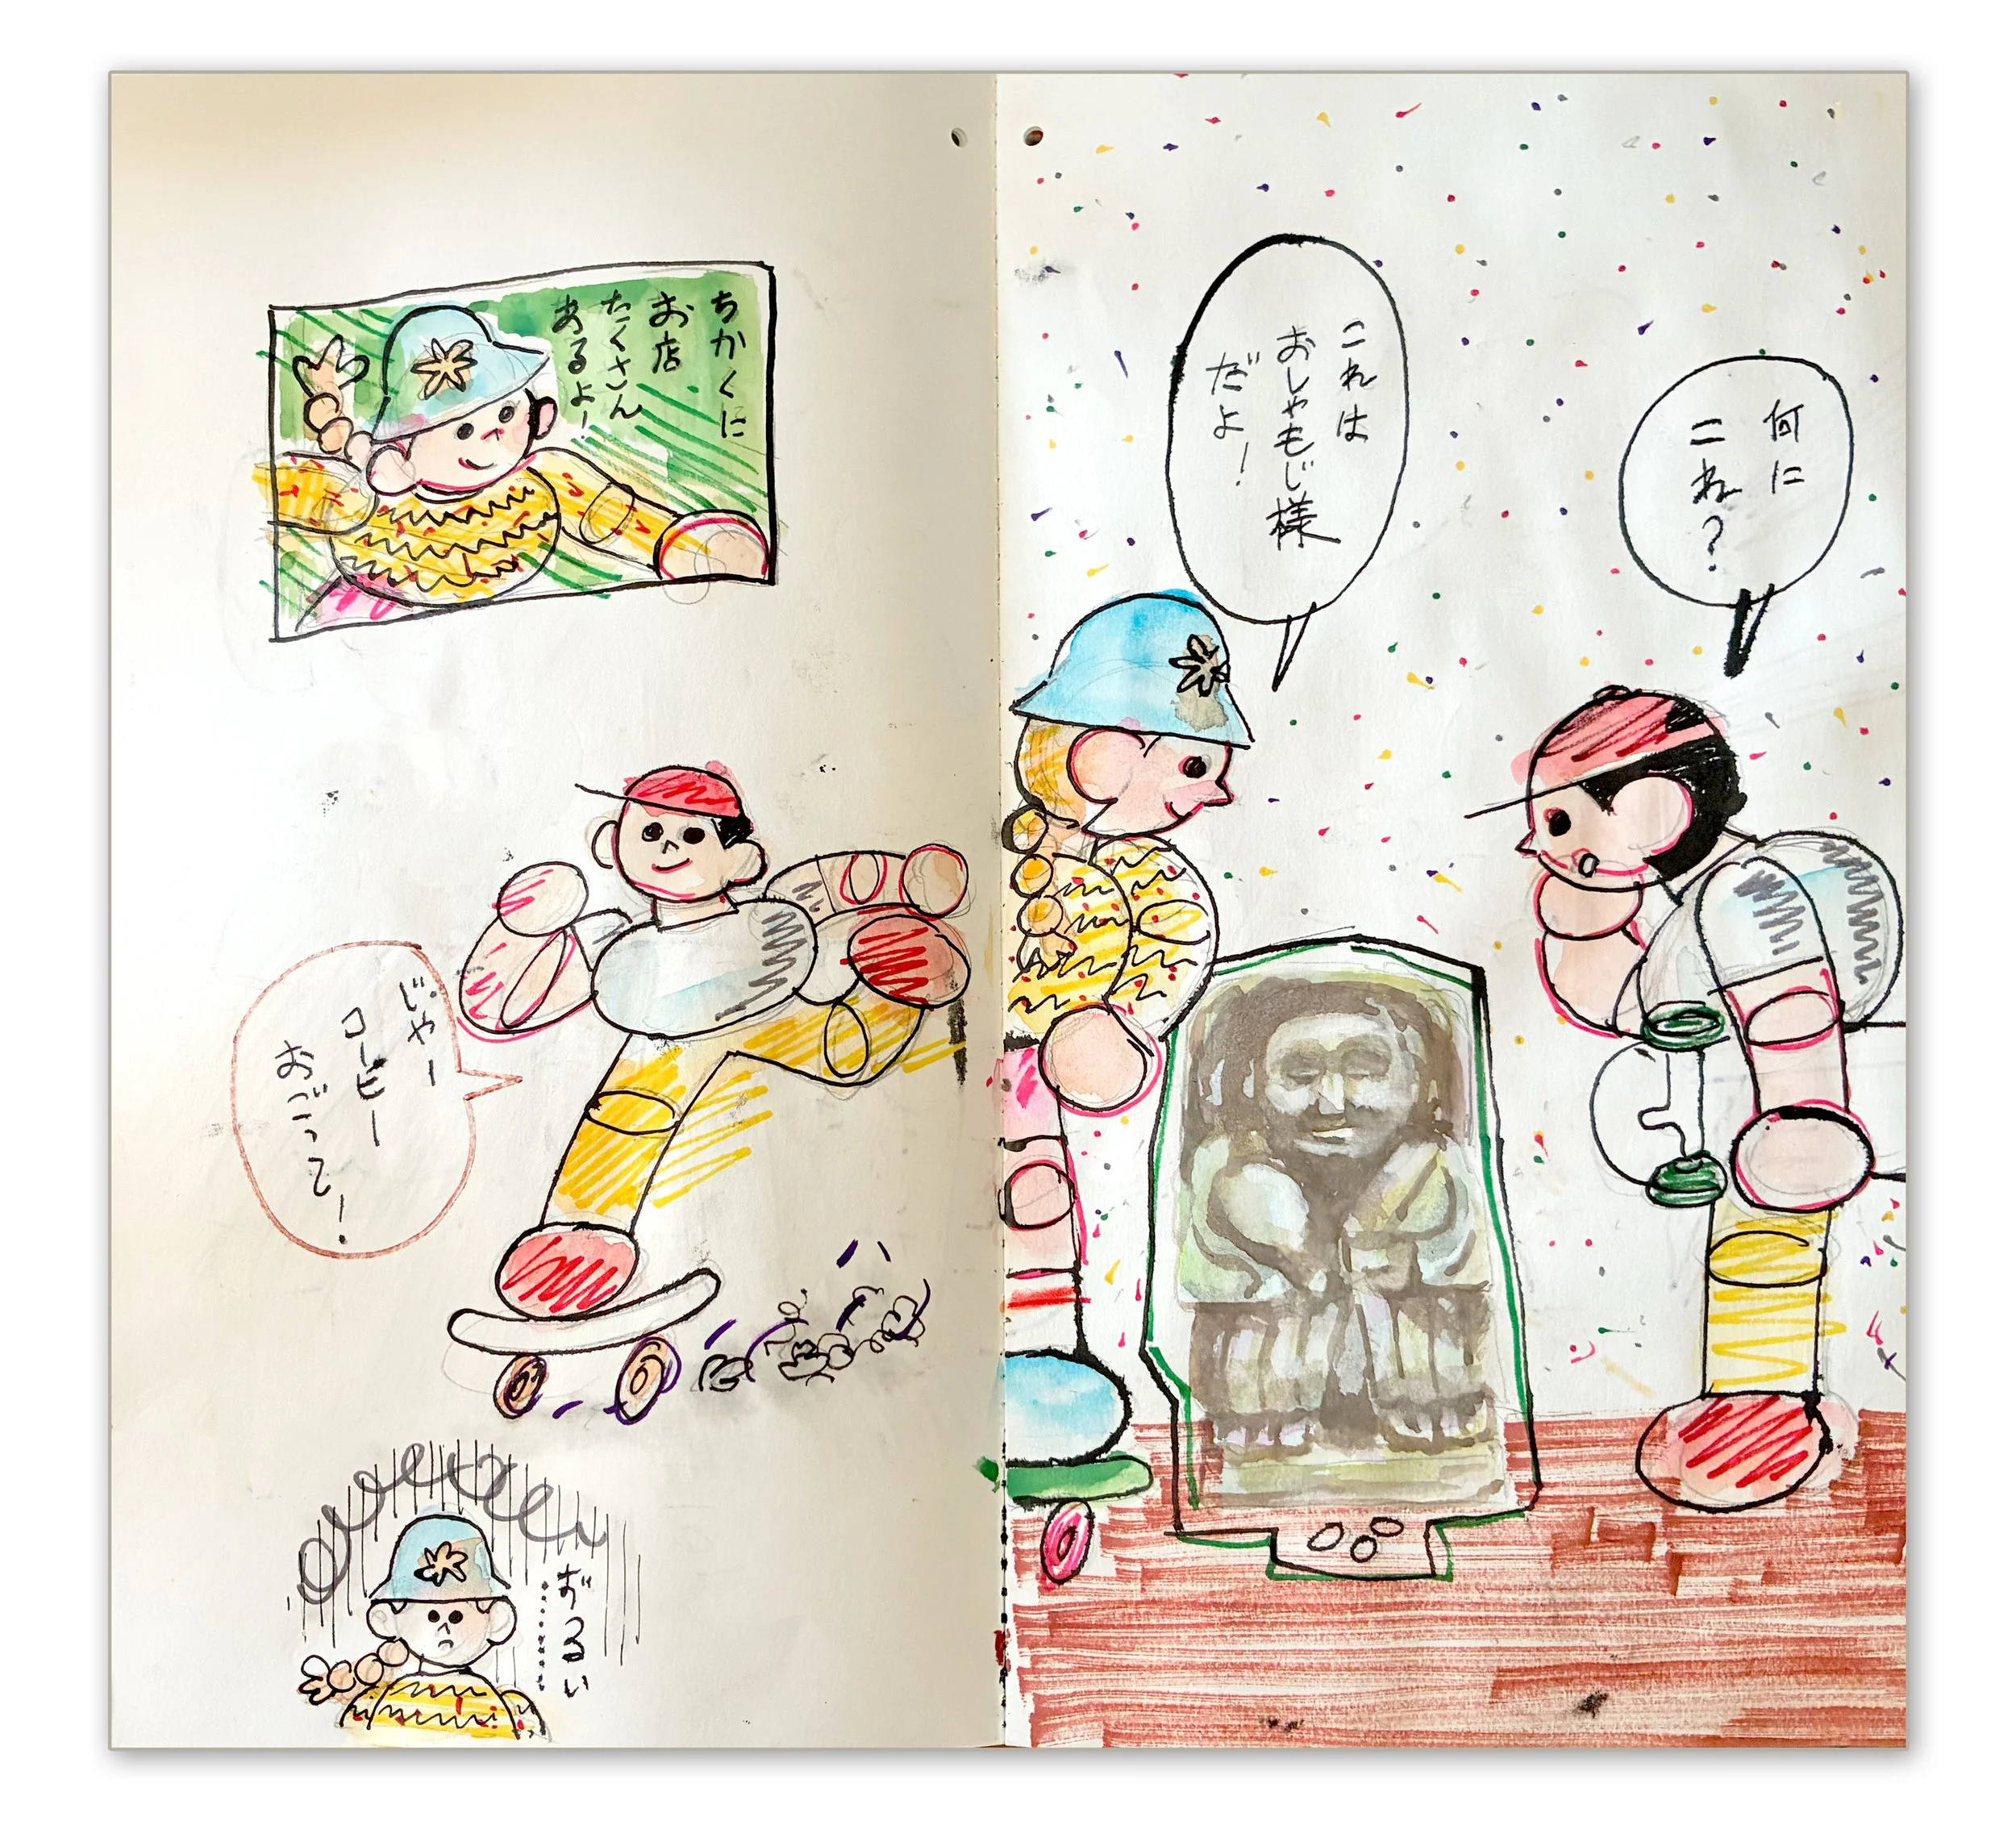 何に
これ？
これは
おしゃもじ様
だよ！
ちかくに
お店
たくさん
あるよ！
じゃー
コーヒー
おごって！
ずるい